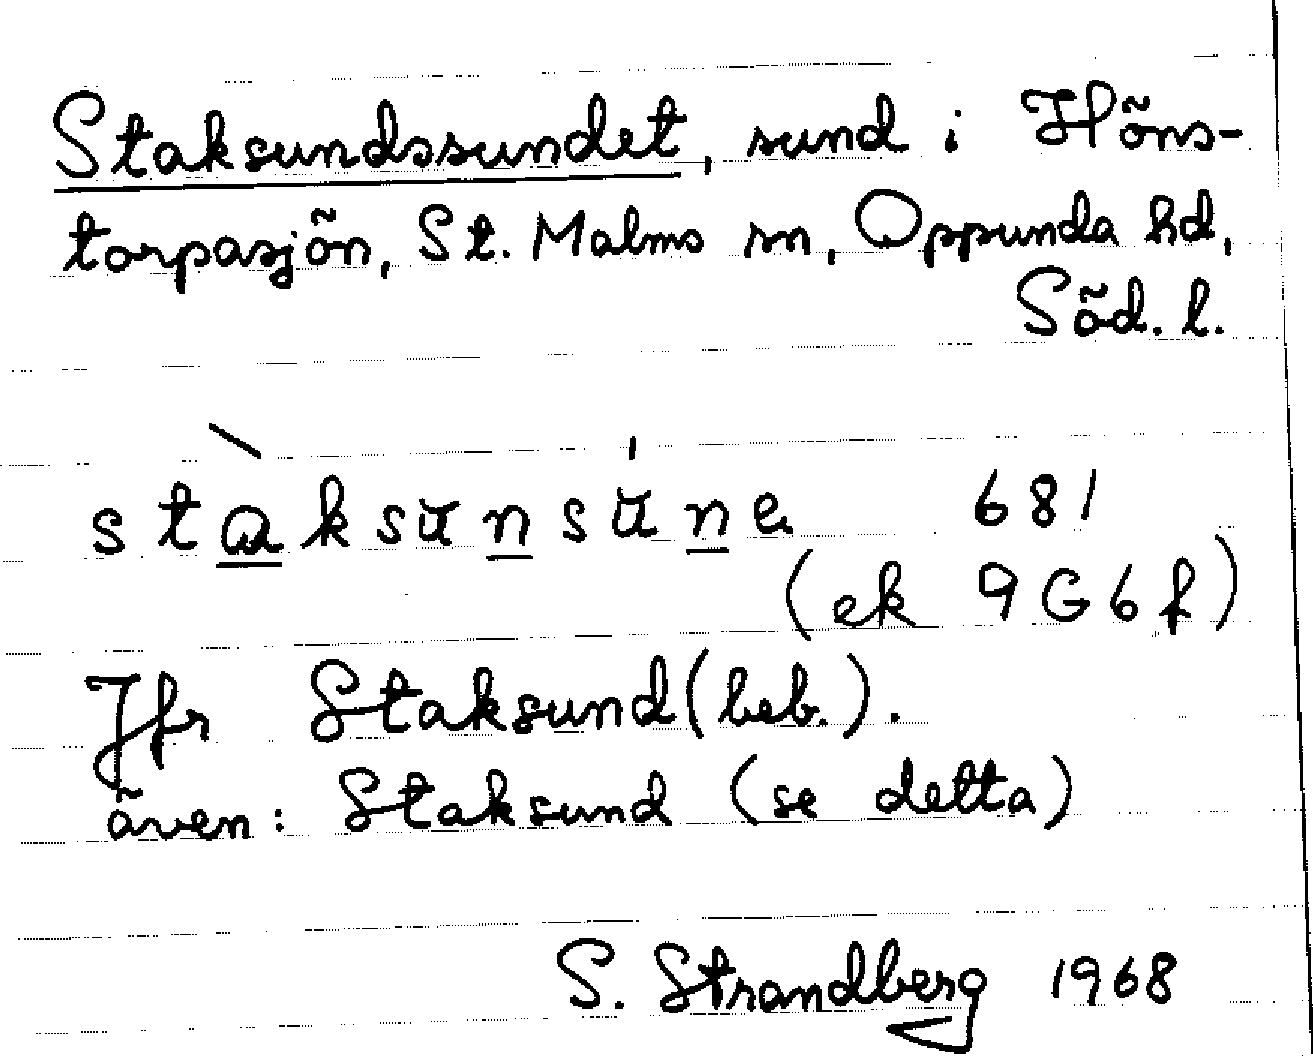 Staksundssundet, sund i Höns-
torpasjön, St. Malms sn, Oppunda hd,
Söd. l.
staksünsüne 681
(ek 9G6f)
Jfr Staksund (beb.).
även: Staksund (se detta)
S. Strandberg 1968